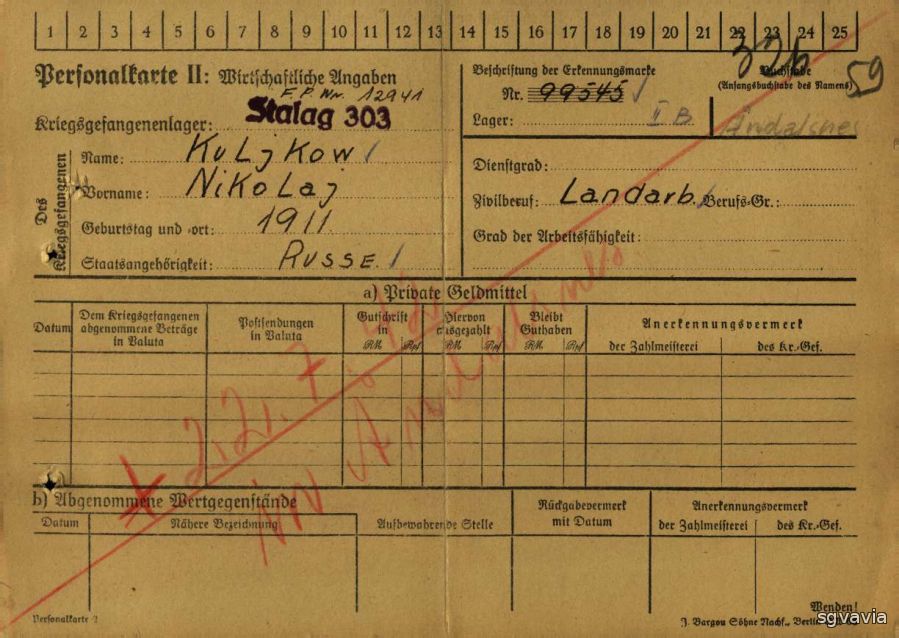 1 2 3 4 5 6 7 8 9 10 11 12 13 14 15 16 17 18 19 20 21 22 23 24 25
Personalkarte II: Wirtschaftliche Angaben
F.P. Nr. 12941
Kriegsgefangenenlager: Stalag 303
Des Kriegsgefangenen
Name: Kuljkow
Vorname: Nikolaj
Geburtstag und -ort: 1911
Staatsangehörigkeit: Russe.
Beschriftung der Erkennungsmarke
Nr. 99545
Lager: II B
326
59
Buchstabe
(Anfangsbuchstabe des Namens)
Åndalsnes
Dienstgrad:
Zivilberuf: Landarb. Berufs-Gr.:
Grad der Arbeitsfähigkeit:
a) Private Geldmittel
Datum
Dem Kriegsgefangenen abgenommene Beträge in Valuta
Postsendungen in Valuta
Gutschrift in
RM Rpf
Hiervon ausgezahlt
RM Rpf
Bleibt Guthaben
RM Rpf
Anerkennungsvermerk
der Zahlmeisterei
des Kr.-Gef.
22.7.
in Åndalsnes
b) Abgenommene Wertgegenstände
Datum
Nähere Bezeichnung
Aufbewahrende Stelle
Rückgabevermerk mit Datum
Anerkennungsvermerk
der Zahlmeisterei
des Kr.-Gef.
Wenden!
Personalkarte 2
J. Bargou Söhne Nachf., Berlin
sgvavia